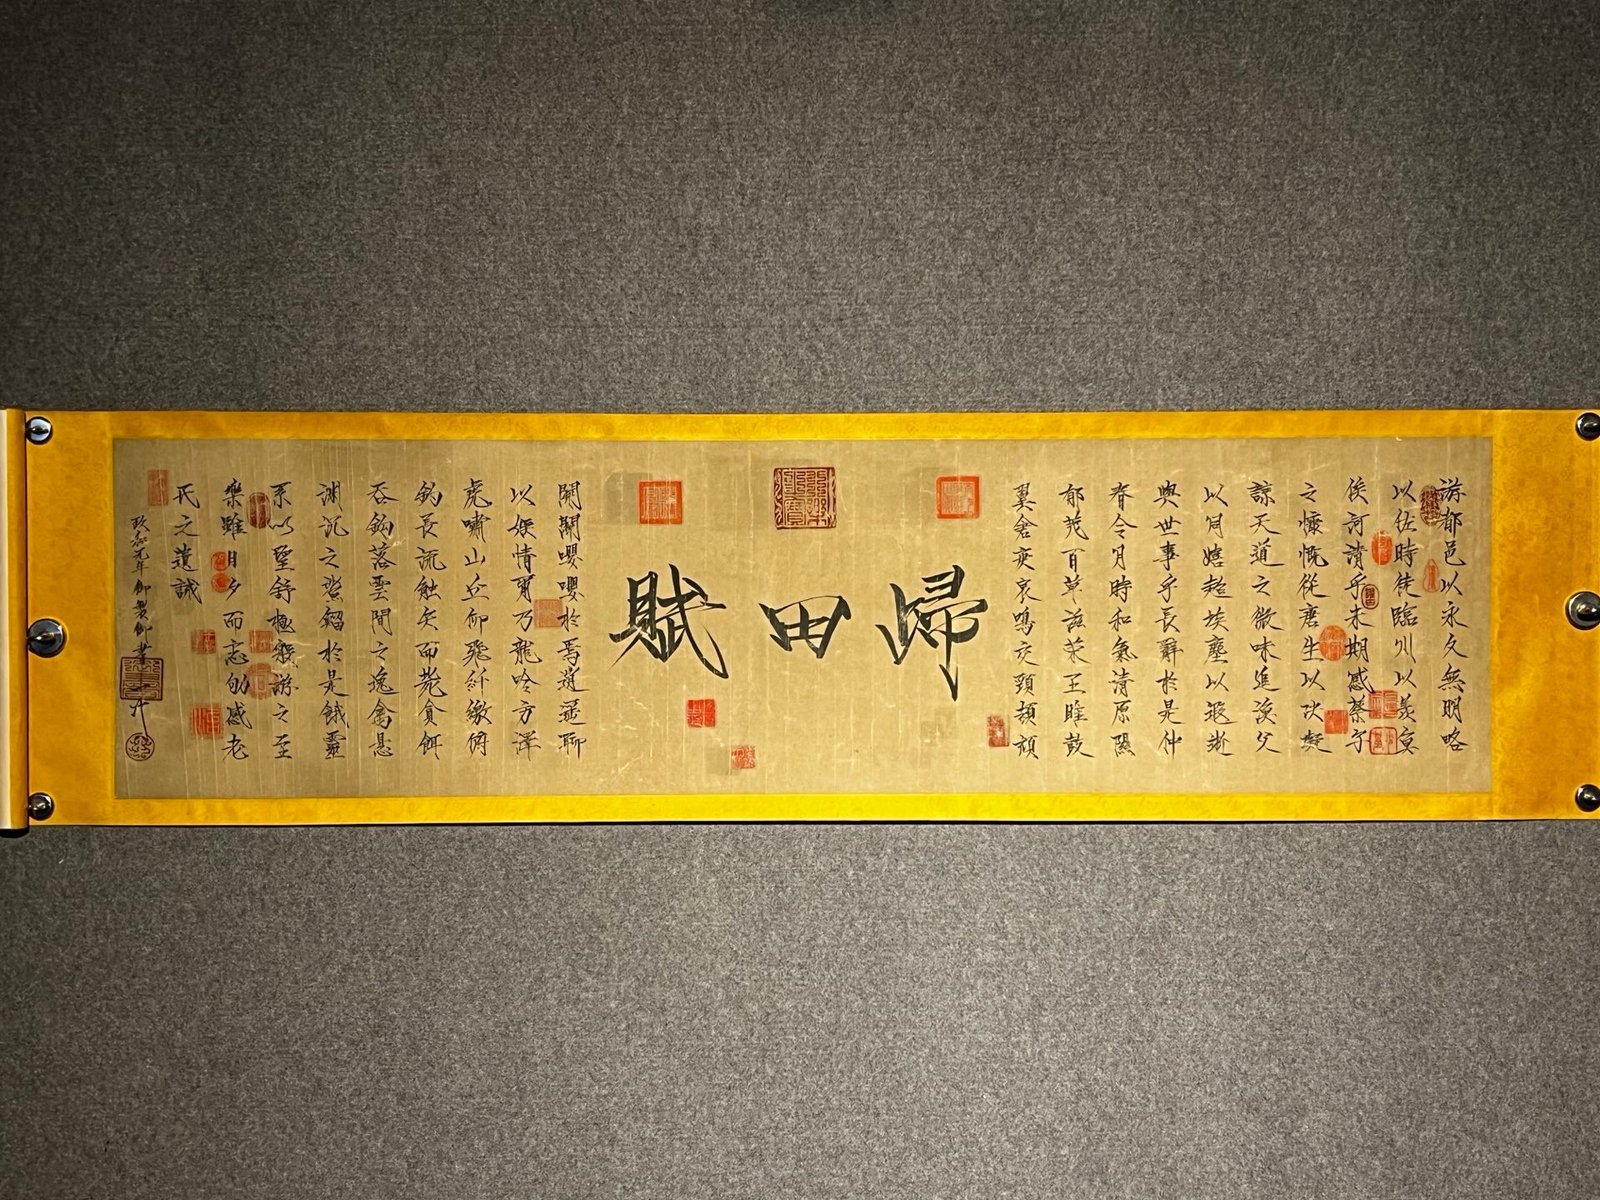 游都邑以永久無明略
以佐時徒臨川以羨魚
俟河清乎未期感蔡子
之慷慨從唐生以决疑
諒天道之微昧追漁父
以同嬉超埃塵以遐逝
與世事乎長辭於是仲
春令月時和氣清原隰
郁茂百草滋榮王雎鼓
翼倉庚哀鳴交頸頡頏
歸田賦
關關嚶嚶於焉逍遥聊
以娱情爾乃龍吟方澤
虎嘯山丘仰飛纤繳俯
釣長流触矢而斃貪餌
吞鈎落雲間之逸禽懸
淵沉之魦鰡於是俄靈
系以望舒極般游之至
樂雖日夕而忘劬感老
氏之遺誡
元年御製御書